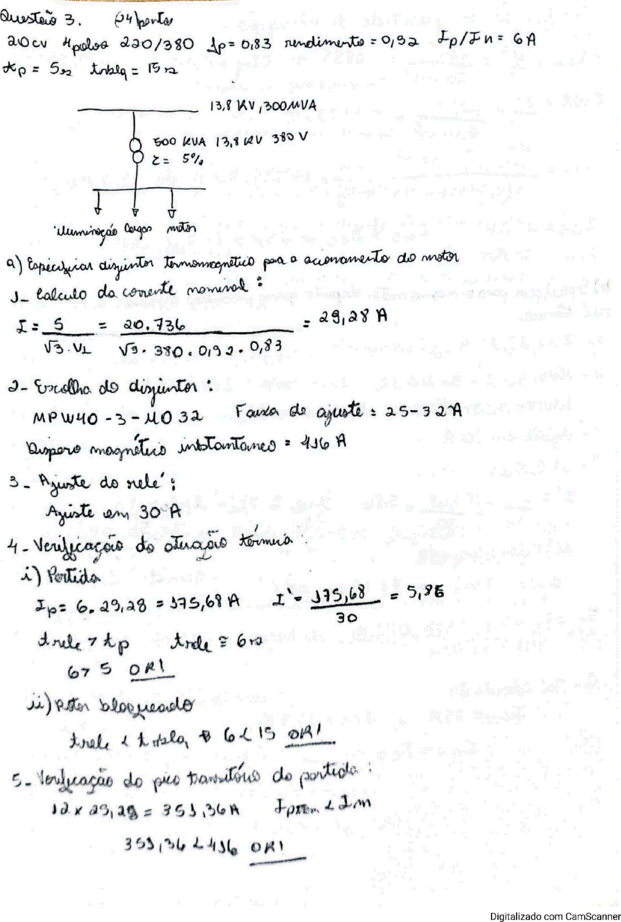 Questão 3. (24 pontos
20cv 4 polos 220/380 fp = 0,83 rendimento = 0,92 Ip/In = 6A
tp = 5s trblq = 15s
13,8 KV, 300MVA
500 KVA 13,8 KV 380 V
Z = 5%
iluminação Cargas motor
a) Especificar disjuntor termomagnético para o acionamento do motor
1- Calculo da corrente nominal:
I = S / √3 . VL = 20.736 / √3 . 380 . 0,92 . 0,83 = 29,28 A
2- Escolha do disjuntor:
MPW40-3-U032 Faixa de ajuste: 25-32A
Disparo magnético instantaneo = 416 A
3- Ajuste do relé:
Ajuste em 30 A
4- Verificação da atuação térmica:
i) Partida
Ip = 6. 29,28 = 175,68 A I' = 175,68 / 30 = 5,86
trele > tp trele ≅ 6s
6 > 5 OK!
ii) Rotor bloqueado
trele < trblq 6 < 15 OK!
5- Verificação do pico transitório da partida:
12 x 29,28 = 351,36A < Im
351,36 < 416 OK!
Digitalizado com CamScanner